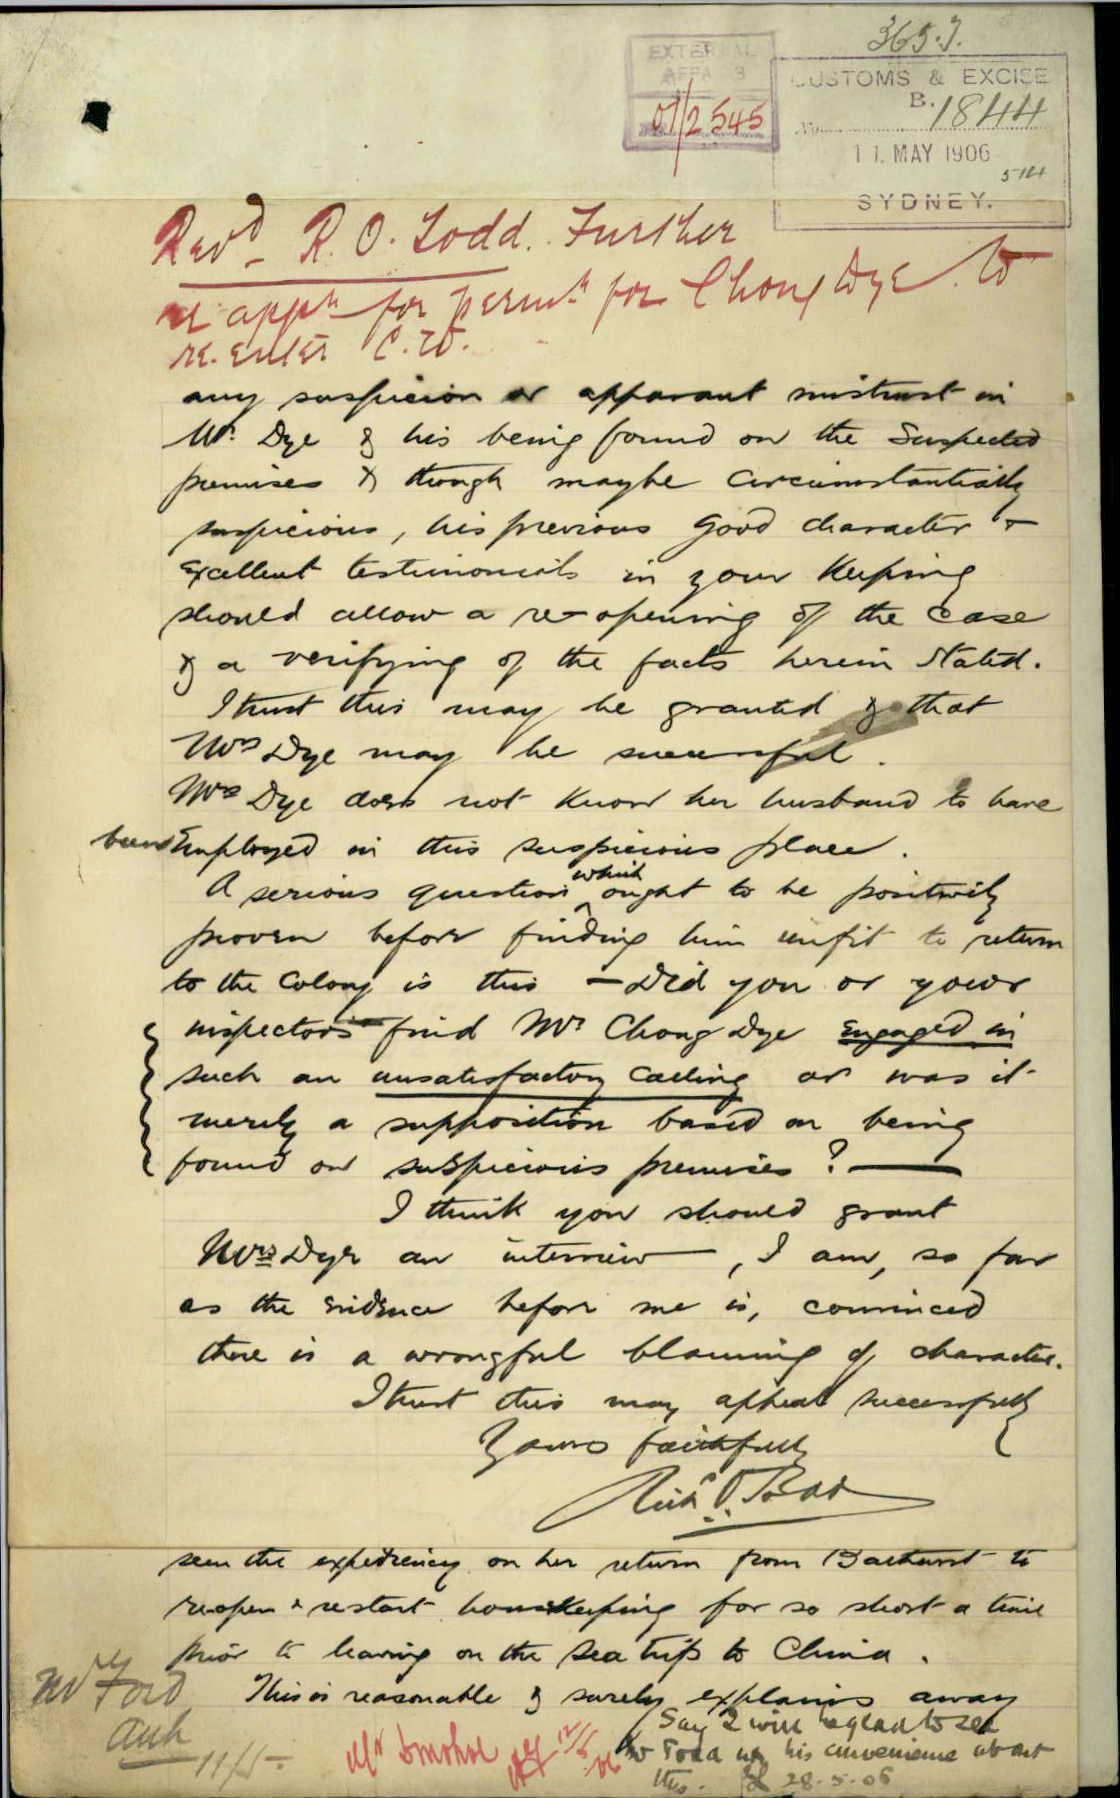 365.J.
EXTERNAL
AFFA S
07/2545
CUSTOMS & EXCISE
B. 1844
11. MAY 1906
SYDNEY.
Revd R. O. Todd. Further
re appn for permn for Chong Dye. to
re. enter C. W.
any suspicion or apparant mistrust in
Mr. Dye & his being found on the Suspected
premises & though maybe circumstantially
suspicious, his previous good character +
excellent testimonials in your keeping
should allow a re-opening of the case
& a verifying of the facts herein stated.
I trust this may be granted & that
Mrs Dye may be successful.
Mrs Dye does not know her husband to have
been Employed in this suspicious place.
A serious question which ought to be positively
proven before finding him unfit to return
to the Colony is this - Did you or your
inspectors find Mr Chong Dye engaged in
such an unsatisfactory calling or was it
merely a supposition based on being
found on suspicious premises? —
I think you should grant
Mrs Dye an interview, I am, so far
as the evidence before me is, convinced
there is a wrongful blaming of character.
I trust this may appeal successfully
Yours faithfully
Richd O. Todd
seen the expediency on her return from Bathurst to
reopen & restart housekeeping for so short a time
prior to leaving on the sea trip to China.
This is reasonable & surely explains away
Mr Ford
11/5
Mr Donohoe 12/5/06
Say I will be glad to see
Mr Todd at his convenience about
this. 28.5.06